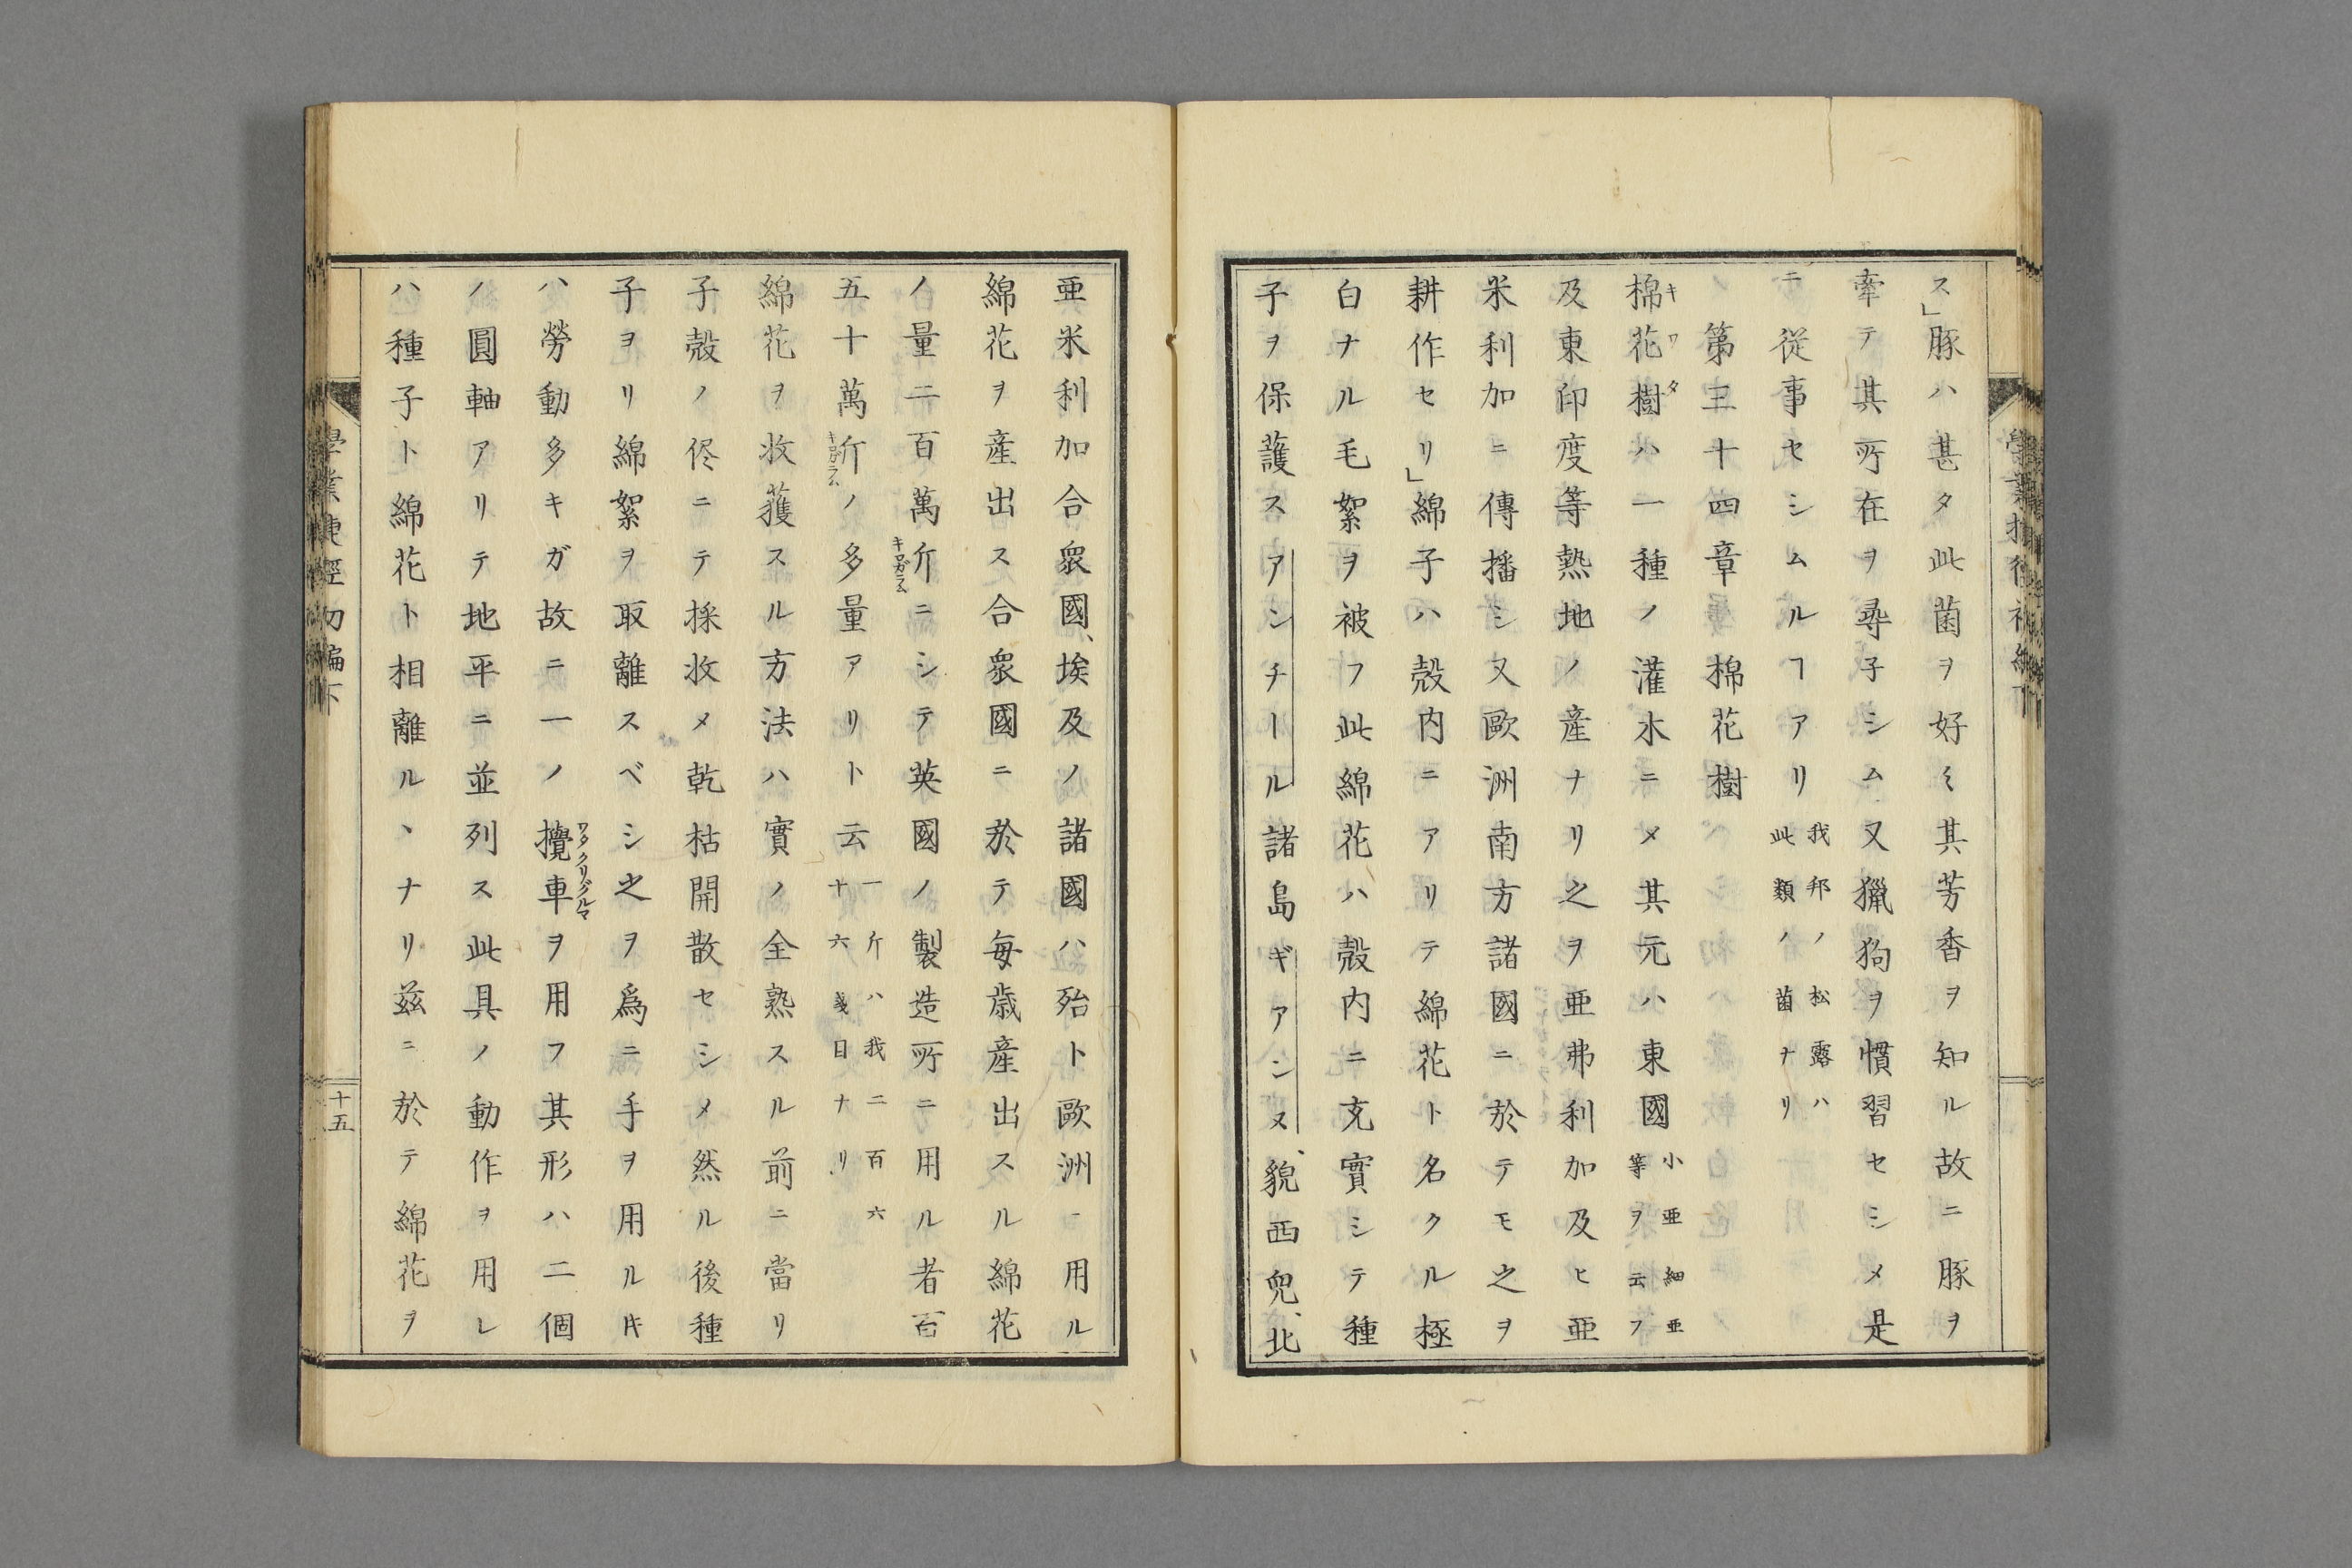 ス」豚ハ甚タ此菌ヲ好ミ其芳香ヲ知ル故ニ豚ヲ
牽テ其所在ヲ尋子シム又獵狗ヲ慣習セシメ是
ニ從事セシムルヿアリ我邦ノ松露ハ此類ノ菌ナリ
第三十四章 棉花樹
棉花樹ハ一種ノ灌木ニメ其元ハ東國小亜細亜等ヲ云フ
キワタ
及東印度等熱地ノ産ナリ之ヲ亜弗利加及ヒ亜
米利加ニ傳播シ又歐洲南方諸國ニ於テモ之ヲ
耕作セリ」綿子ハ殼内ニアリテ綿花ト名クル極
白ナル毛絮ヲ被フ此綿花ハ殼内ニ充實シテ種
子ヲ保護スアンチール諸島ギアシヌ、貌西兒、北
亜米利加合衆國、埃及ノ諸國ハ殆ト歐洲ニ用ル
綿花ヲ産出ス合衆國ニ於テ毎歳産出スル綿花
ノ量二百萬斤ニシテ英國ノ製造所ニ用ル者百
キロガラム
五十萬斤ノ多量アリト云一斤ハ我二百六十六戔目ナリ
キロガラム
綿花ヲ收獲スル方法ハ實ノ全熟スル前ニ當リ
子殼ノ侭ニテ採收メ乾枯開散セシメ然ル後種
子ヲリ綿絮ヲ取離スベシ之ヲ爲ニ手ヲ用ルキ
ハ勞動多キガ故ニ一ノ攪車ヲ用フ其形ハ二個
ワタクリグルマ
ノ圓軸アリテ地平ニ並列ス此具ノ動作ヲ用レ
ハ種子ト綿花ト相離ルヽナリ兹ニ於テ綿花ヲ
學業捷徑初編下
十五